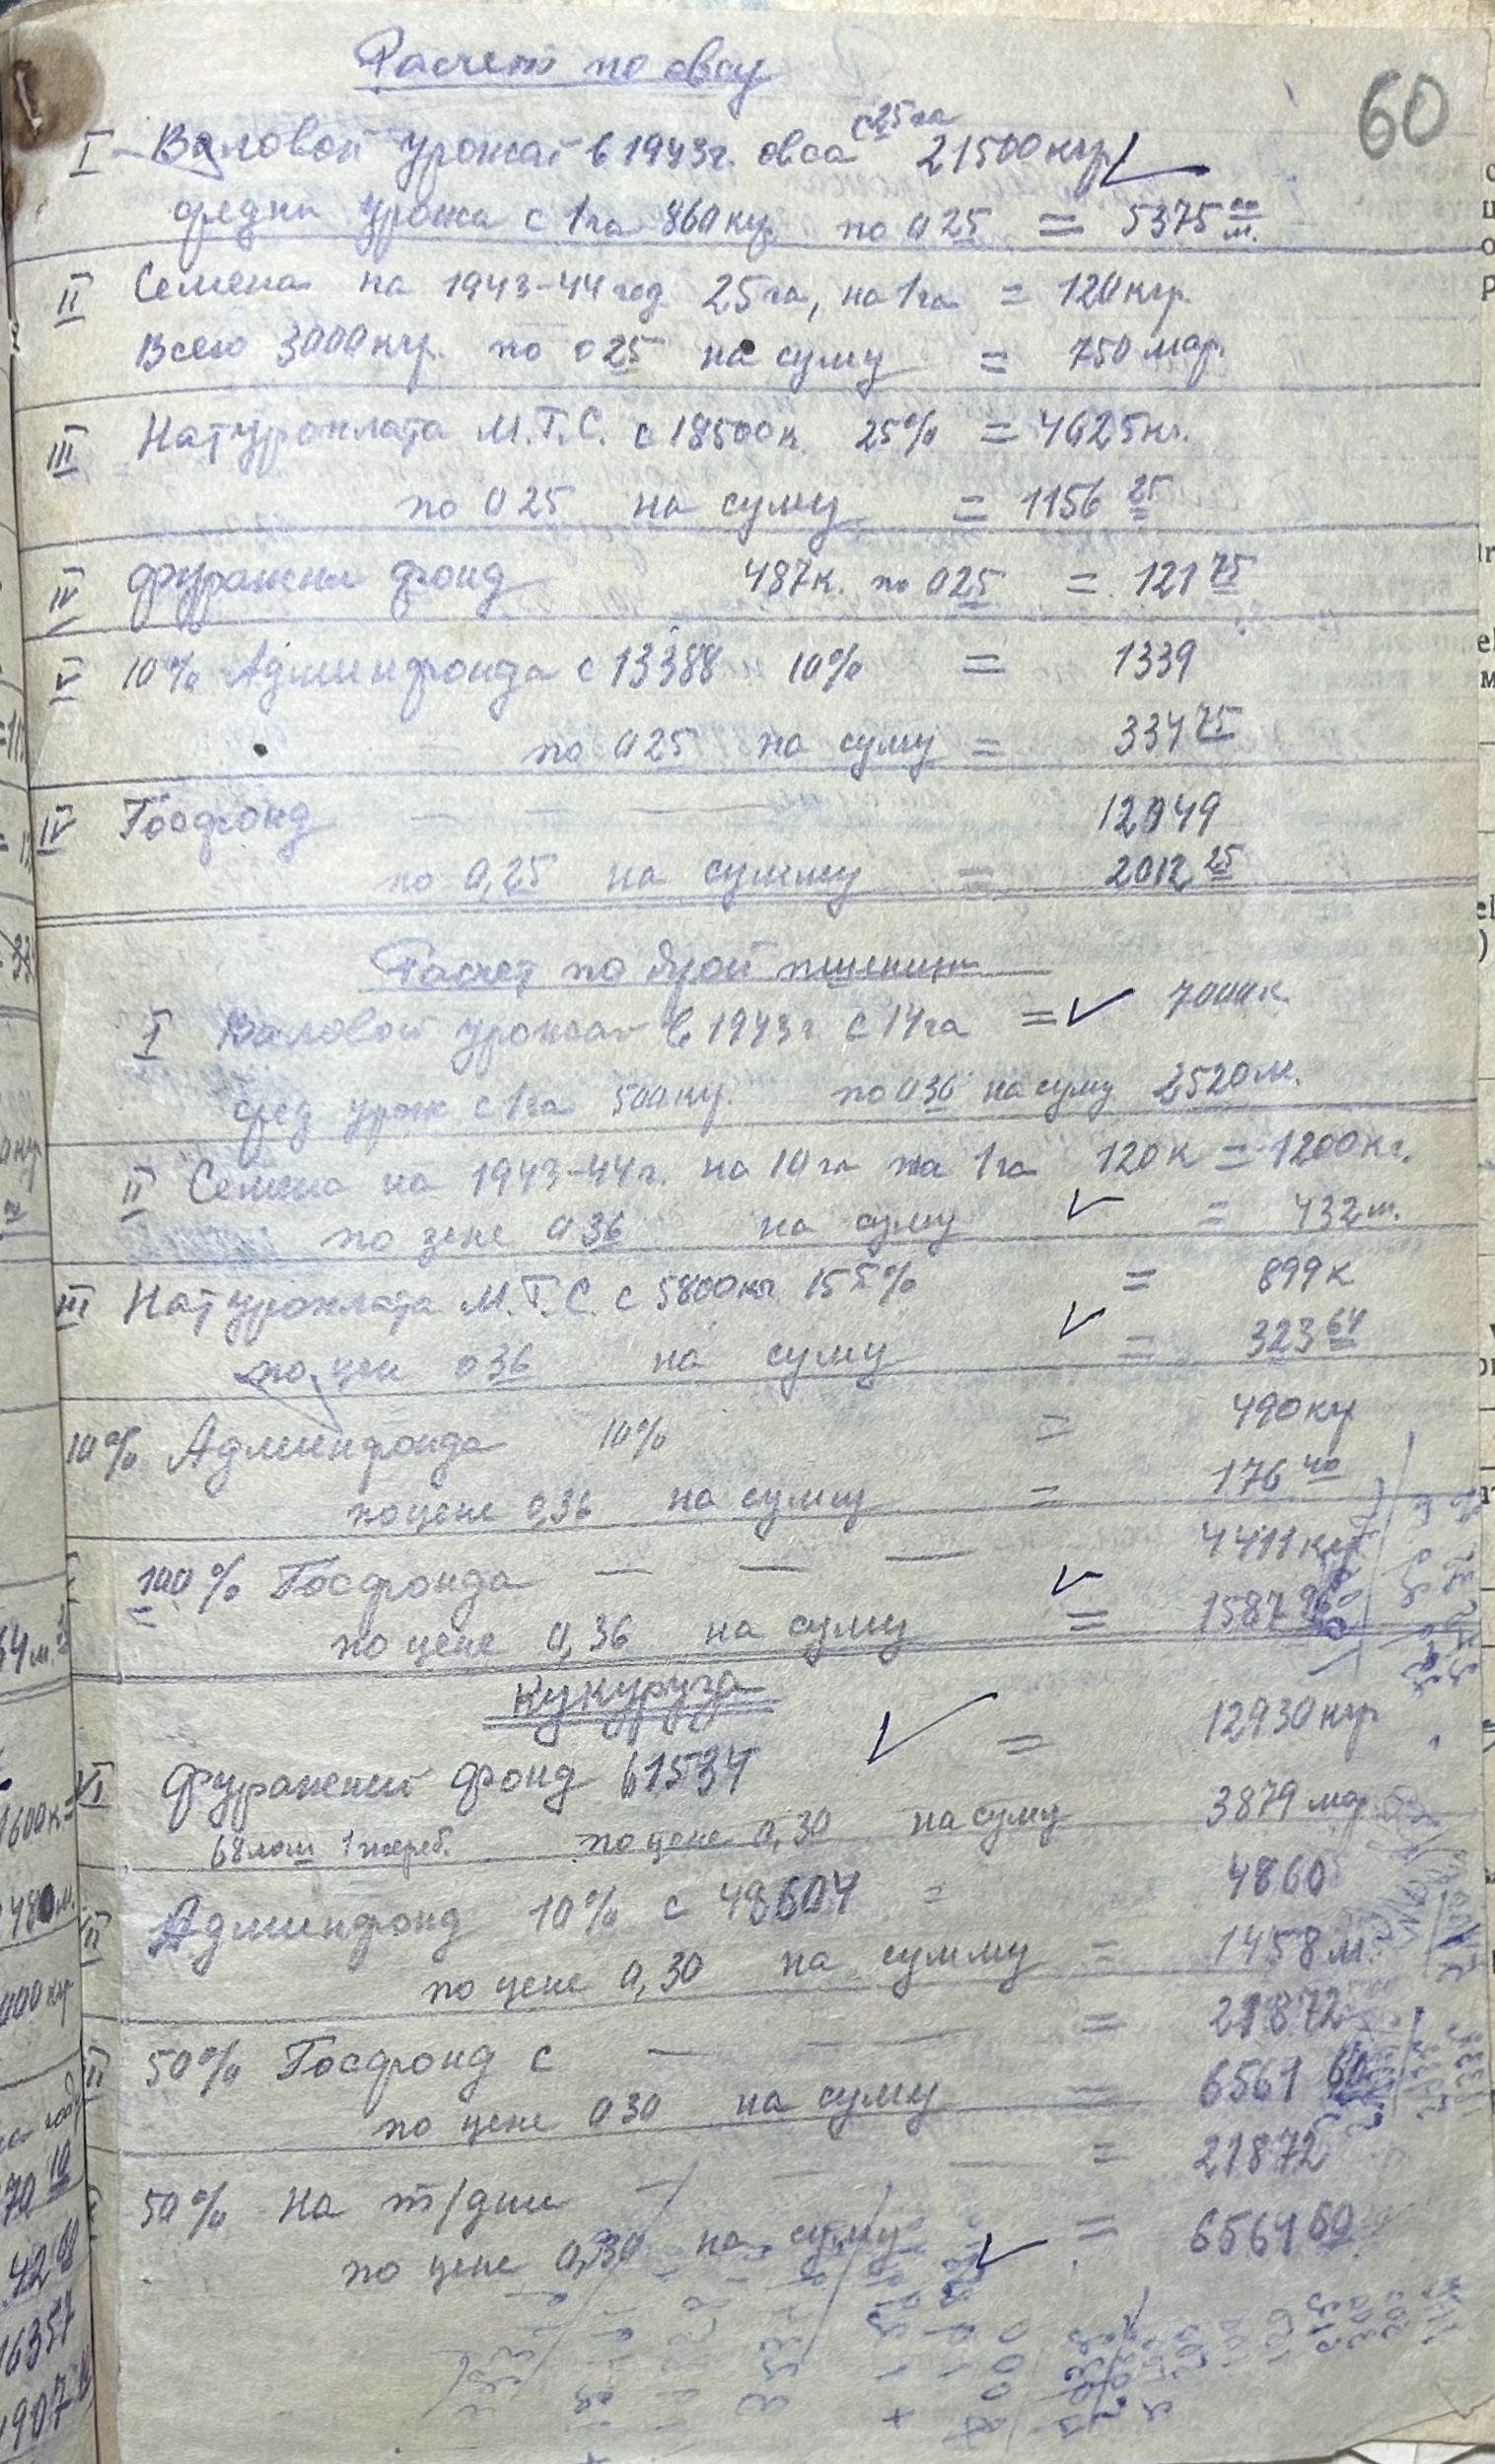 60
Расчет по овсу
I Валовой урожай в 1943г. овса с 25 га 21500 кгр.
средни урожа с 1га 860 кгр. по 0 25 = 5375 00 м.
II Семена на 1943-44 год 25 га, на 1 га = 120 кгр.
Всего 3000 кгр. по 0 25 на суму = 750 мар.
III Натуроплата М.Т.С. с 18500 к. 25% = 4625 кг.
по 0 25 на суму = 1156 25
IV Фуражни фонд 487 к. по 0 25 = 121 75
V 10% Админфонда с 13388 10% = 1339
по 0 25 на суму = 334 75
IV Госфонд — — — 12049
по 0,25 на сумму = 2012 25
Расчет по Ярой пшеницы
I Валовой урожай в 1943г с 14 га = 7000 к.
сред урож с 1га 500 кгр. по 0 36 на суму 2520 м.
II Семена на 1943-44г. на 10 га на 1 га 120 к = 1200 кг.
по цене 0 36 на суму = 432 м.
III Натуроплата М.Т.С. с 5800 кг. 15 5% = 899 к
по цен 0 36 на суму = 323 64
10% Админфонда 10% = 490 кгр
по цене 0,36 на сумму = 176 40
100% Госфонда — — — 4411 кгр
по цене 0,36 на суму = 1587 96
Кукуруза
VI Фуражний фонд 61534 = 12930 кгр
68 лош 1 жереб. по цене 0,30 на суму 3879 мар
II Админфонд 10% с 48604 = 4860
по цене 0,30 на сумму = 1458 м.
II 50% Госфонд с — — — = 21872
по цене 0 30 на суму = 6561 60
50% На т/дни — — — = 21872
по цене 0,30 на суму = 6561 60